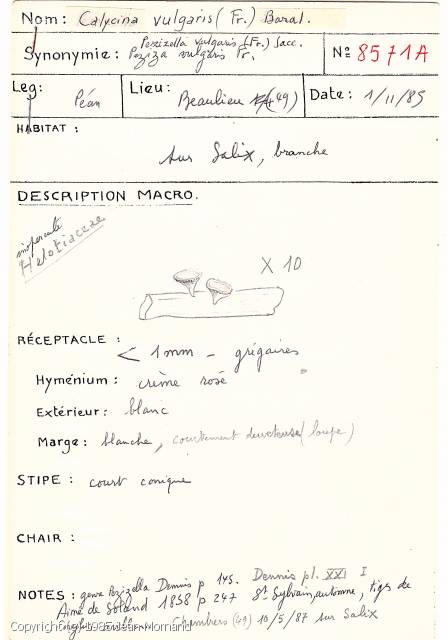 Nom: Calycina vulgaris (Fr.) Baral.
Pezizella vulgaris (Fr.) Sacc.
Synonymie: Peziza vulgaris Fr.
No 8571A
Leg: Péan
Lieu: Beaulieu (49)
Date: 1/11/85
HABITAT :
sur Salix, branche
DESCRIPTION MACRO.
inoperculé
Helotiaceae
X 10
RÉCEPTACLE :
< 1mm - grégaires
Hyménium : crème rosé
Extérieur: blanc
Marge: blanche, courtement duveteuse (loupe)
STIPE : court conique
CHAIR :
NOTES : genre Pezizella Dennis p 145. Dennis pl. XXI I
Aimé de Soland 1858 p 247 St Sylvain, automne, tiges de
Chambiers (49) 10/5/87 sur Salix
Copyright